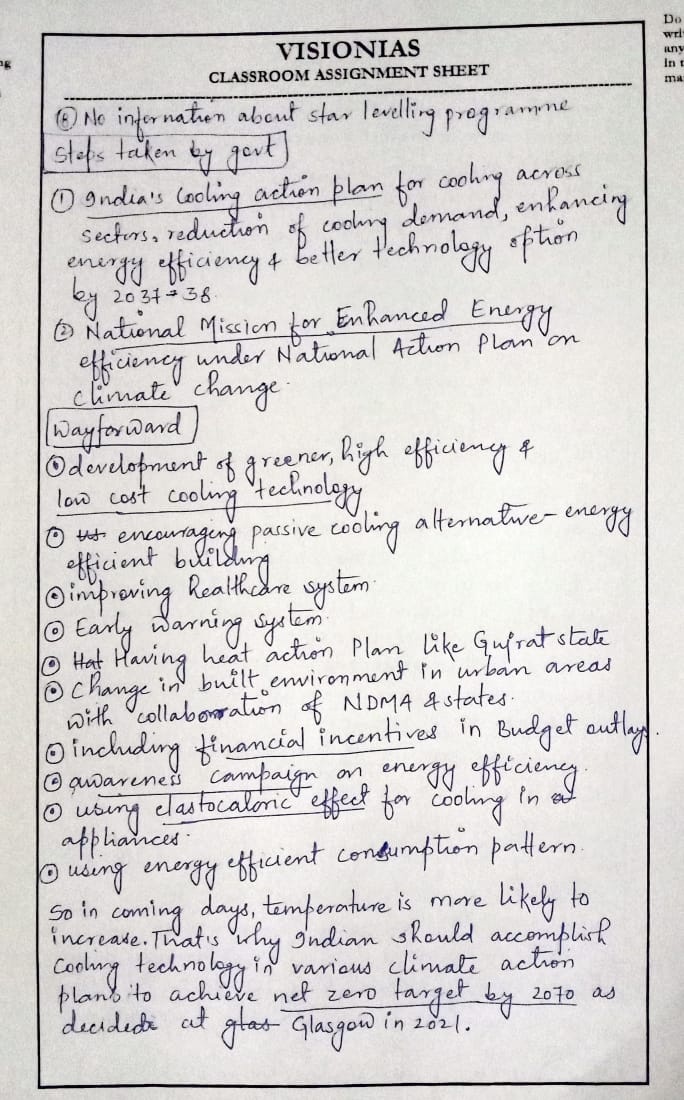 Do
wri
any
In t
ma
ng
VISIONIAS
CLASSROOM ASSIGNMENT SHEET
⑧ No information about star levelling programme
Steps taken by govt
① India's Cooling action plan for cooling across
sectors, reduction of cooling demand, enhancing
energy efficiency & better technology option
by 2037-38.
② National Mission for Enhanced Energy
efficiency under National Action Plan on
climate change.
Wayforward
⊙ development of greener, high efficiency &
low cost cooling technology
⊙ encouraging passive cooling alternative - energy
efficient building
⊙ improving Healthcare system.
⊙ Early warning system.
⊙ Hat Having heat action Plan like Gujrat state
⊙ Change in built environment in urban areas
with collaboration of NDMA & states.
⊙ including financial incentives in Budget outlay.
⊙ awareness campaign on energy efficiency.
⊙ using elastocaloric effect for cooling in
appliances.
⊙ using energy efficient consumption pattern.
So in coming days, temperature is more likely to
increase. That's why Indian should accomplish
Cooling technology in various climate action
plans to achieve net zero target by 2070 as
decided at glas Glasgow in 2021.